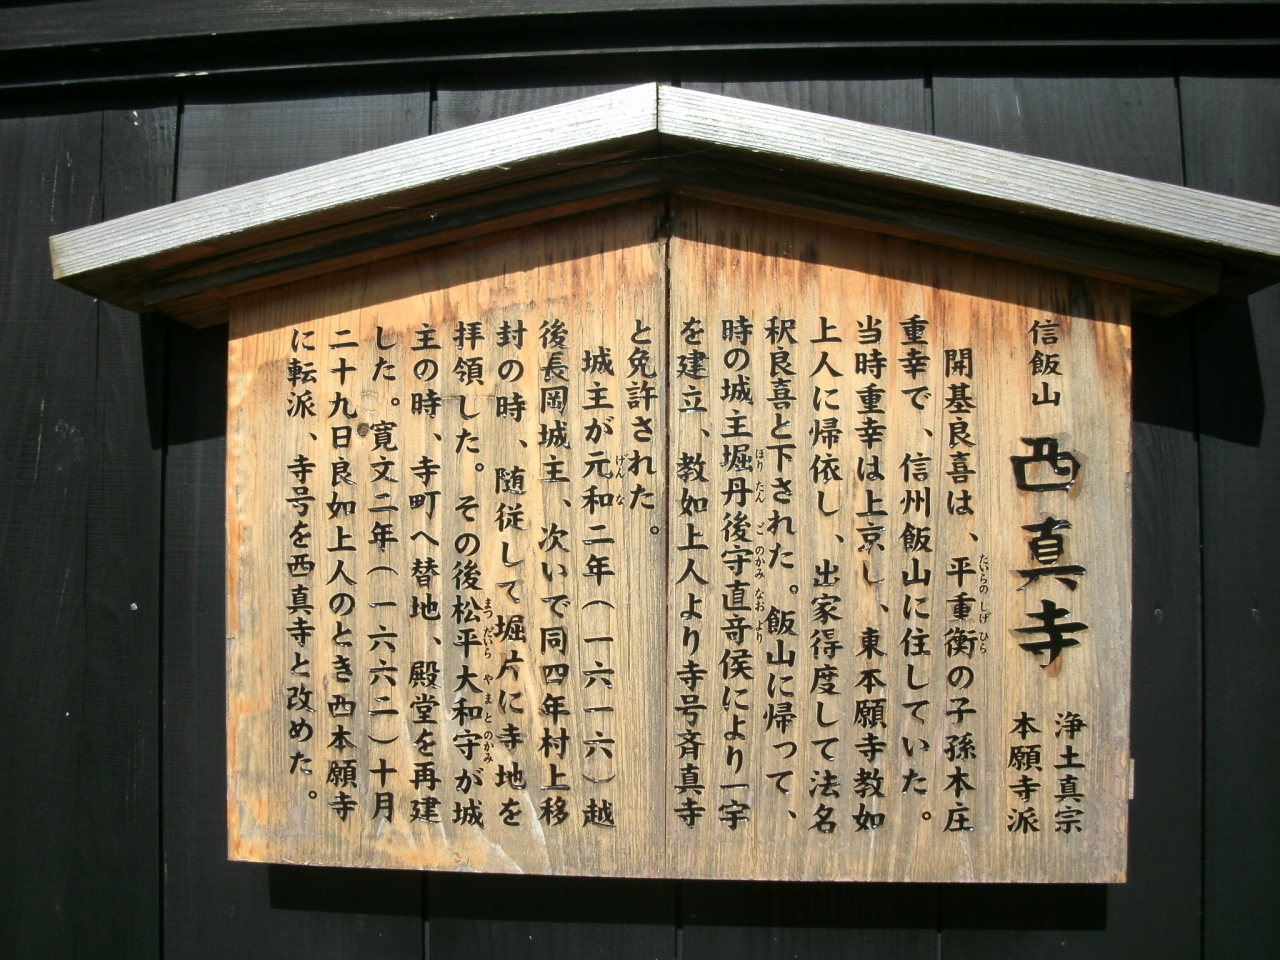 信飯山 西真寺
浄土真宗
本願寺派
開基良喜は、平重衡の子孫本庄
たいらの しげ ひら
重幸で、信州飯山に住していた。
当時重幸は上京し、東本願寺教如
上人に帰依し、出家得度して法名
釈良喜と下された。飯山に帰って、
時の城主堀丹後守直竒侯により一宇
ほり たん ご のかみ なお より
を建立、教如上人より寺号斉真寺
と免許された。
城主が元和二年(一六一六)越
げん な
後長岡城主、次いで同四年村上移
封の時、随従して堀片に寺地を
拝領した。その後松平大和守が城
まつ だいら やまとのかみ
主の時、寺町へ替地、殿堂を再建
した。寛文二年(一六六二)十月
二十九日良如上人のとき西本願寺
に転派、寺号を西真寺と改めた。